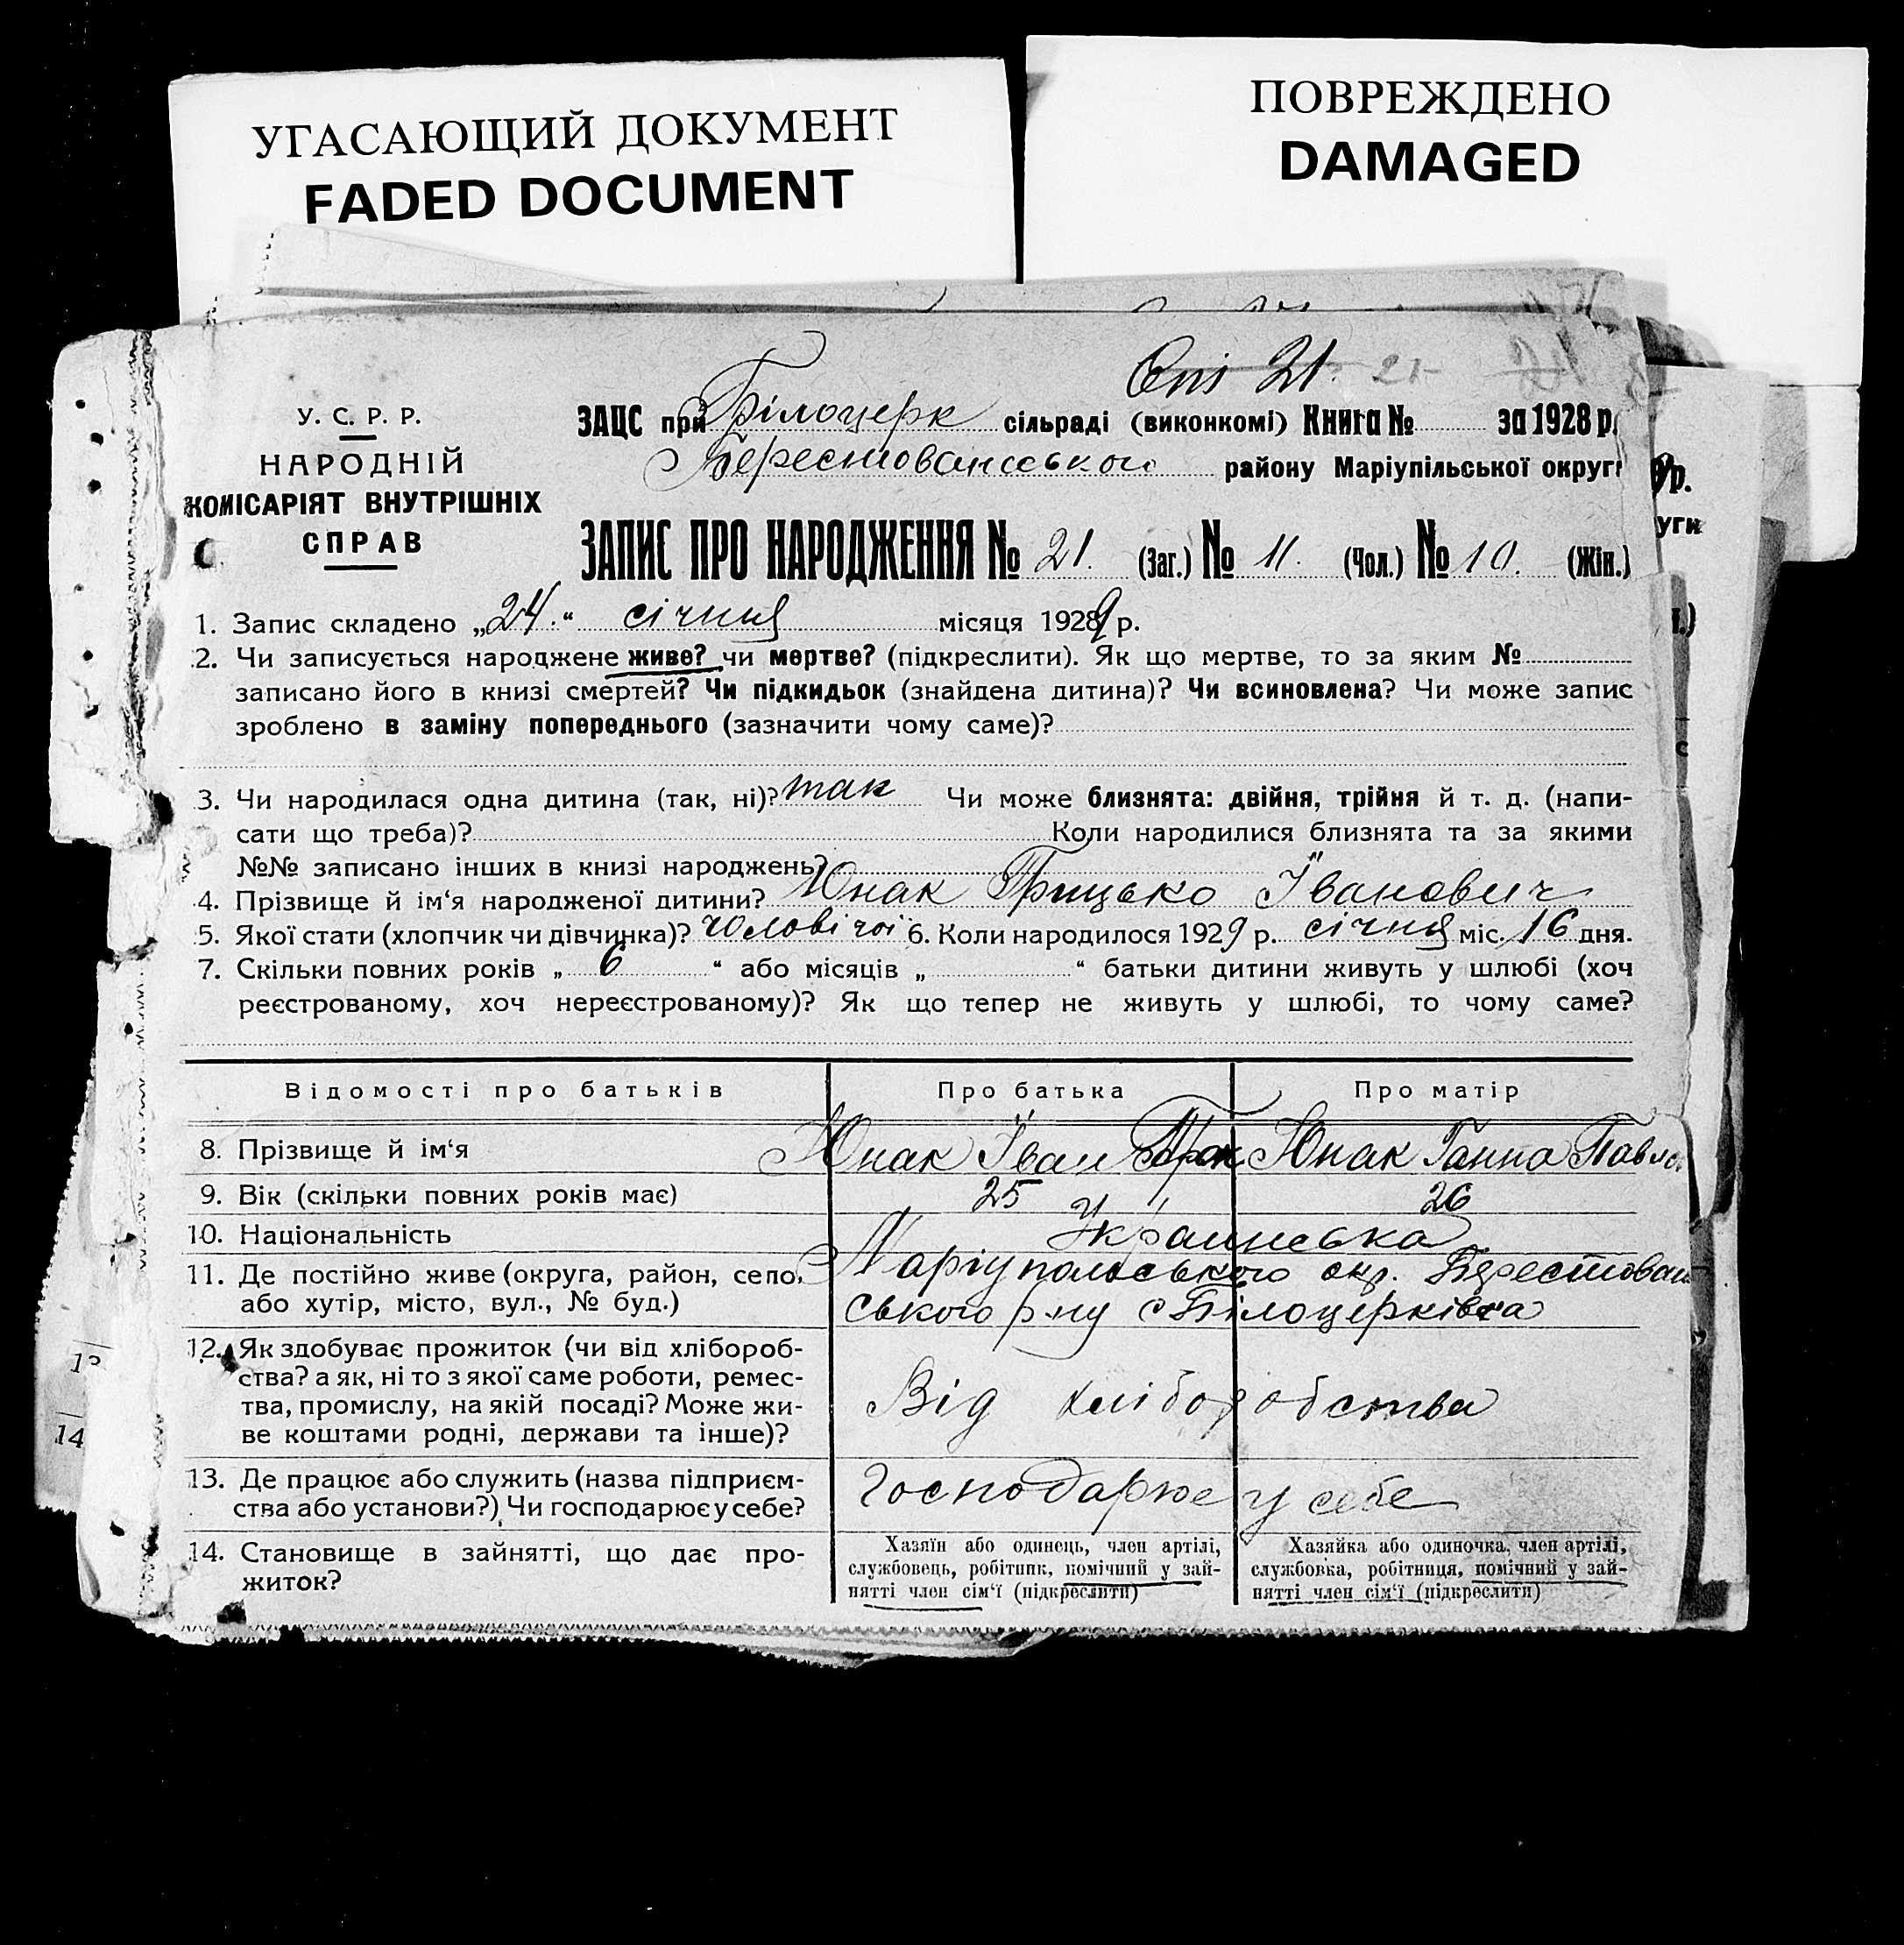 УГАСАЮЩИЙ ДОКУМЕНТ
FADED DOCUMENT
ПОВРЕЖДЕНО
DAMAGED
21. 21
У. С. Р. Р.
НАРОДНІЙ
КОМІСАРІЯТ ВНУТРІШНІХ
СПРАВ
ЗАЦС при Білоцерк сільраді (виконкомі) Книга № за 1928 р.
Берестованського району Маріупільської округи
ЗАПИС ПРО НАРОДЖЕННЯ № 21. (Заг.) № 11. (Чол.) № 10. (Жін.)
1. Запис складено „24.“ січня місяця 1929 р.
2. Чи записується народжене живе? чи мертве? (підкреслити). Як що мертве, то за яким №
записано його в книзі смертей? Чи підкидьок (знайдена дитина)? Чи всиновлена? Чи може запис
зроблено в заміну попереднього (зазначити чому саме)?
3. Чи народилася одна дитина (так, ні)? так Чи може близнята: двійня, трійня й т. д. (напи-
сати що треба)? Коли народилися близнята та за якими
№№ записано інших в книзі народжень?
4. Прізвище й ім‘я народженої дитини? Юнак Грицько Іванович
5. Якої стати (хлопчик чи дівчинка)? Чоловічої 6. Коли народилося 1929 р. січня міс. 16 дня.
7. Скільки повних років „ 6 “ або місяців „ “ батьки дитини живуть у шлюбі (хоч
реєстрованому, хоч нереєстрованому)? Як що тепер не живуть у шлюбі, то чому саме?
Відомості про батьків Про батька Про матір
8. Прізвище й ім‘я Юнак Іван Юнак Ганна Павл
9. Вік (скільки повних років має) 25 26
10. Національність Украинська
11. Де постійно живе (округа, район, село, Маріупольського окр. Берестован
або хутір, місто, вул., № буд.) ського р-ну с Білоцерківка
12. Як здобуває прожиток (чи від хлібороб-
ства? а як, ні то з якої саме роботи, ремес-
тва, промислу, на якій посаді? Може жи- Від хліборобства
ве коштами родні, держави та інше)?
13. Де працює або служить (назва підприєм- Господарює у себе
ства або установи?) Чи господарює у себе?
14. Становище в зайнятті, що дає про-
житок?
Хазяїн або одинець, член артілі,
службовець, робітник, помічний у зай-
нятті член сім‘ї (підкреслити)
Хазяйка або одиночка, член артілі,
службовка, робітниця, помічний у зай-
нятті член сім‘ї (підкреслити)
р.
уги
14